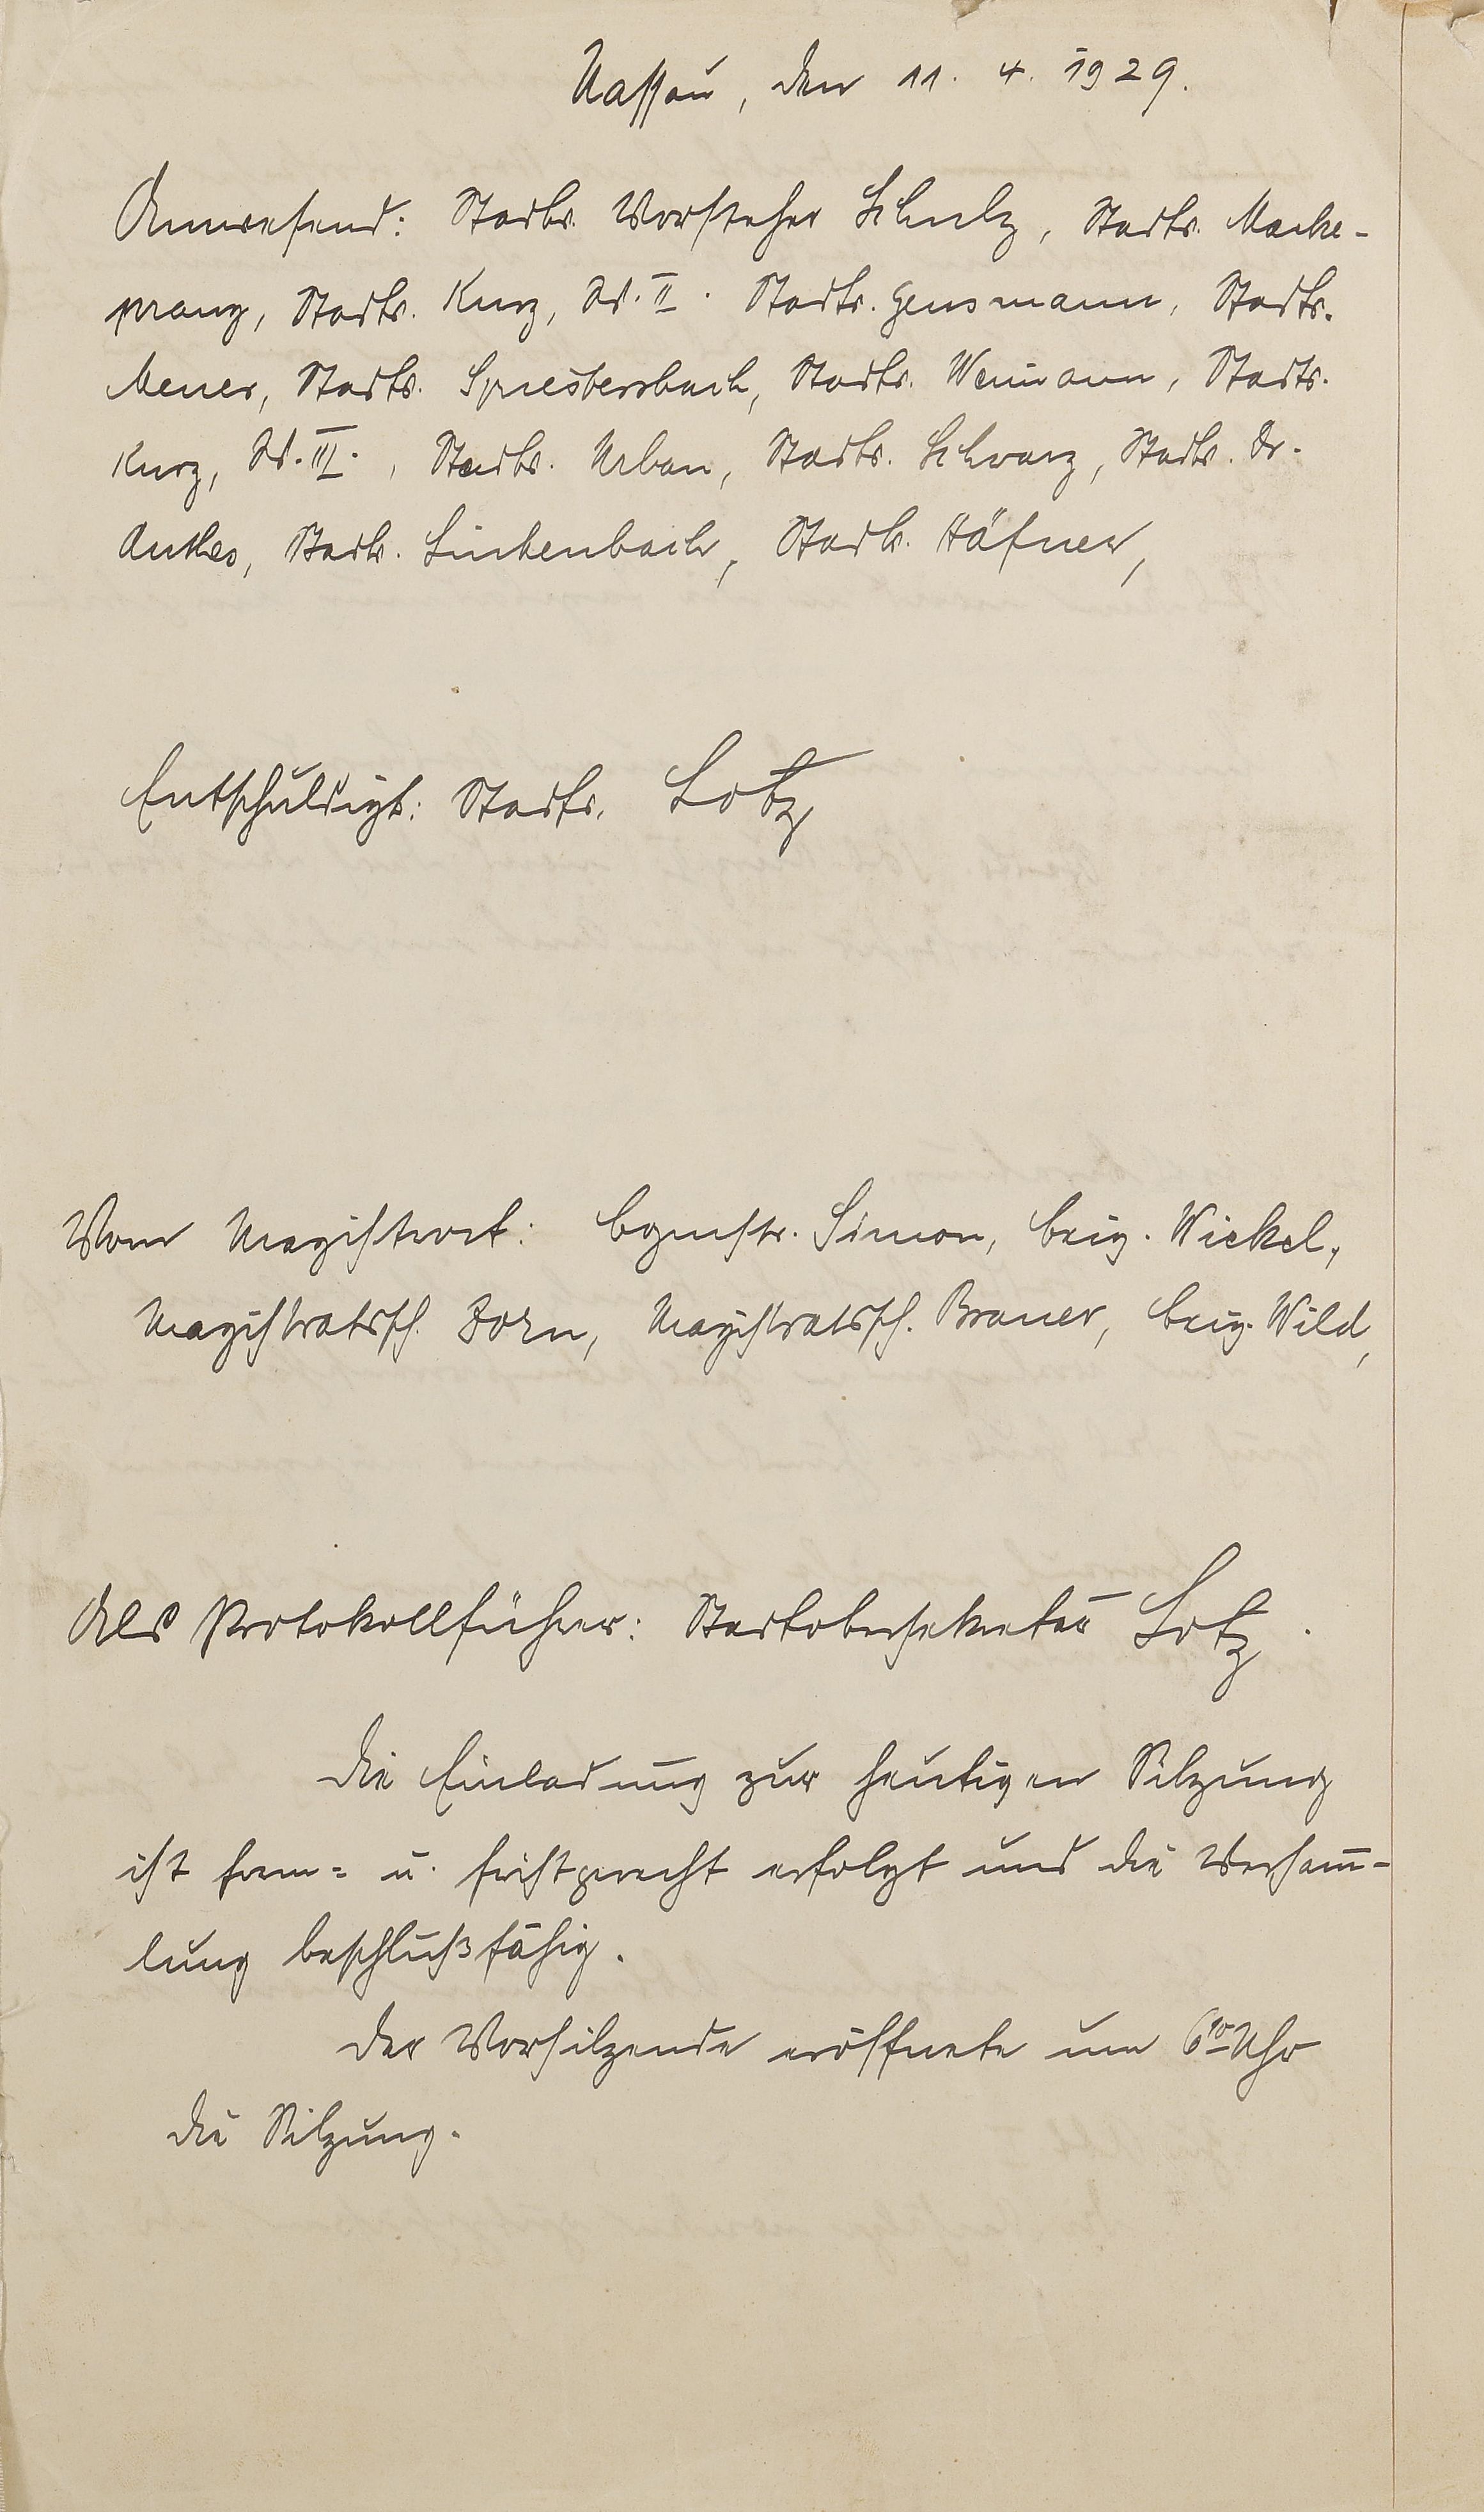 Nassau, den 11. 4. 1929.
Anwesend: Stadtv. Vorsteher Schulz, Stadtv. Macke-
prang, Stadtv. Kurz, Ad. II. Stadtv. Gensmann, Stadtv.
Meuer, Stadtv. Spriestersbach, Stadtv. Weimann, Stadtv.
Kurz, Ad. III., Stadtv. Urban, Stadtv. Schwarz, Stadtv. Dr.
Anthes, Stadtv. Linkenbach, Stadtv. Häfner,
Entschuldigt: Stadtv. Lotz
Vom Magistrat: Bgmstr. Simon, Beig. Wickel,
Magistratssch. Zorn, Magistratssch. Brauer, Beig. Wild,
Als Protokollführer: Stadtobersekretär Lotz.
Die Einladung zur heutigen Sitzung
ist form= u. fristgerecht erfolgt und die Versam̄-
lung beschlußfähig.
Der Vorsitzende eröffnete um 6¹⁰ Uhr
die Sitzung.